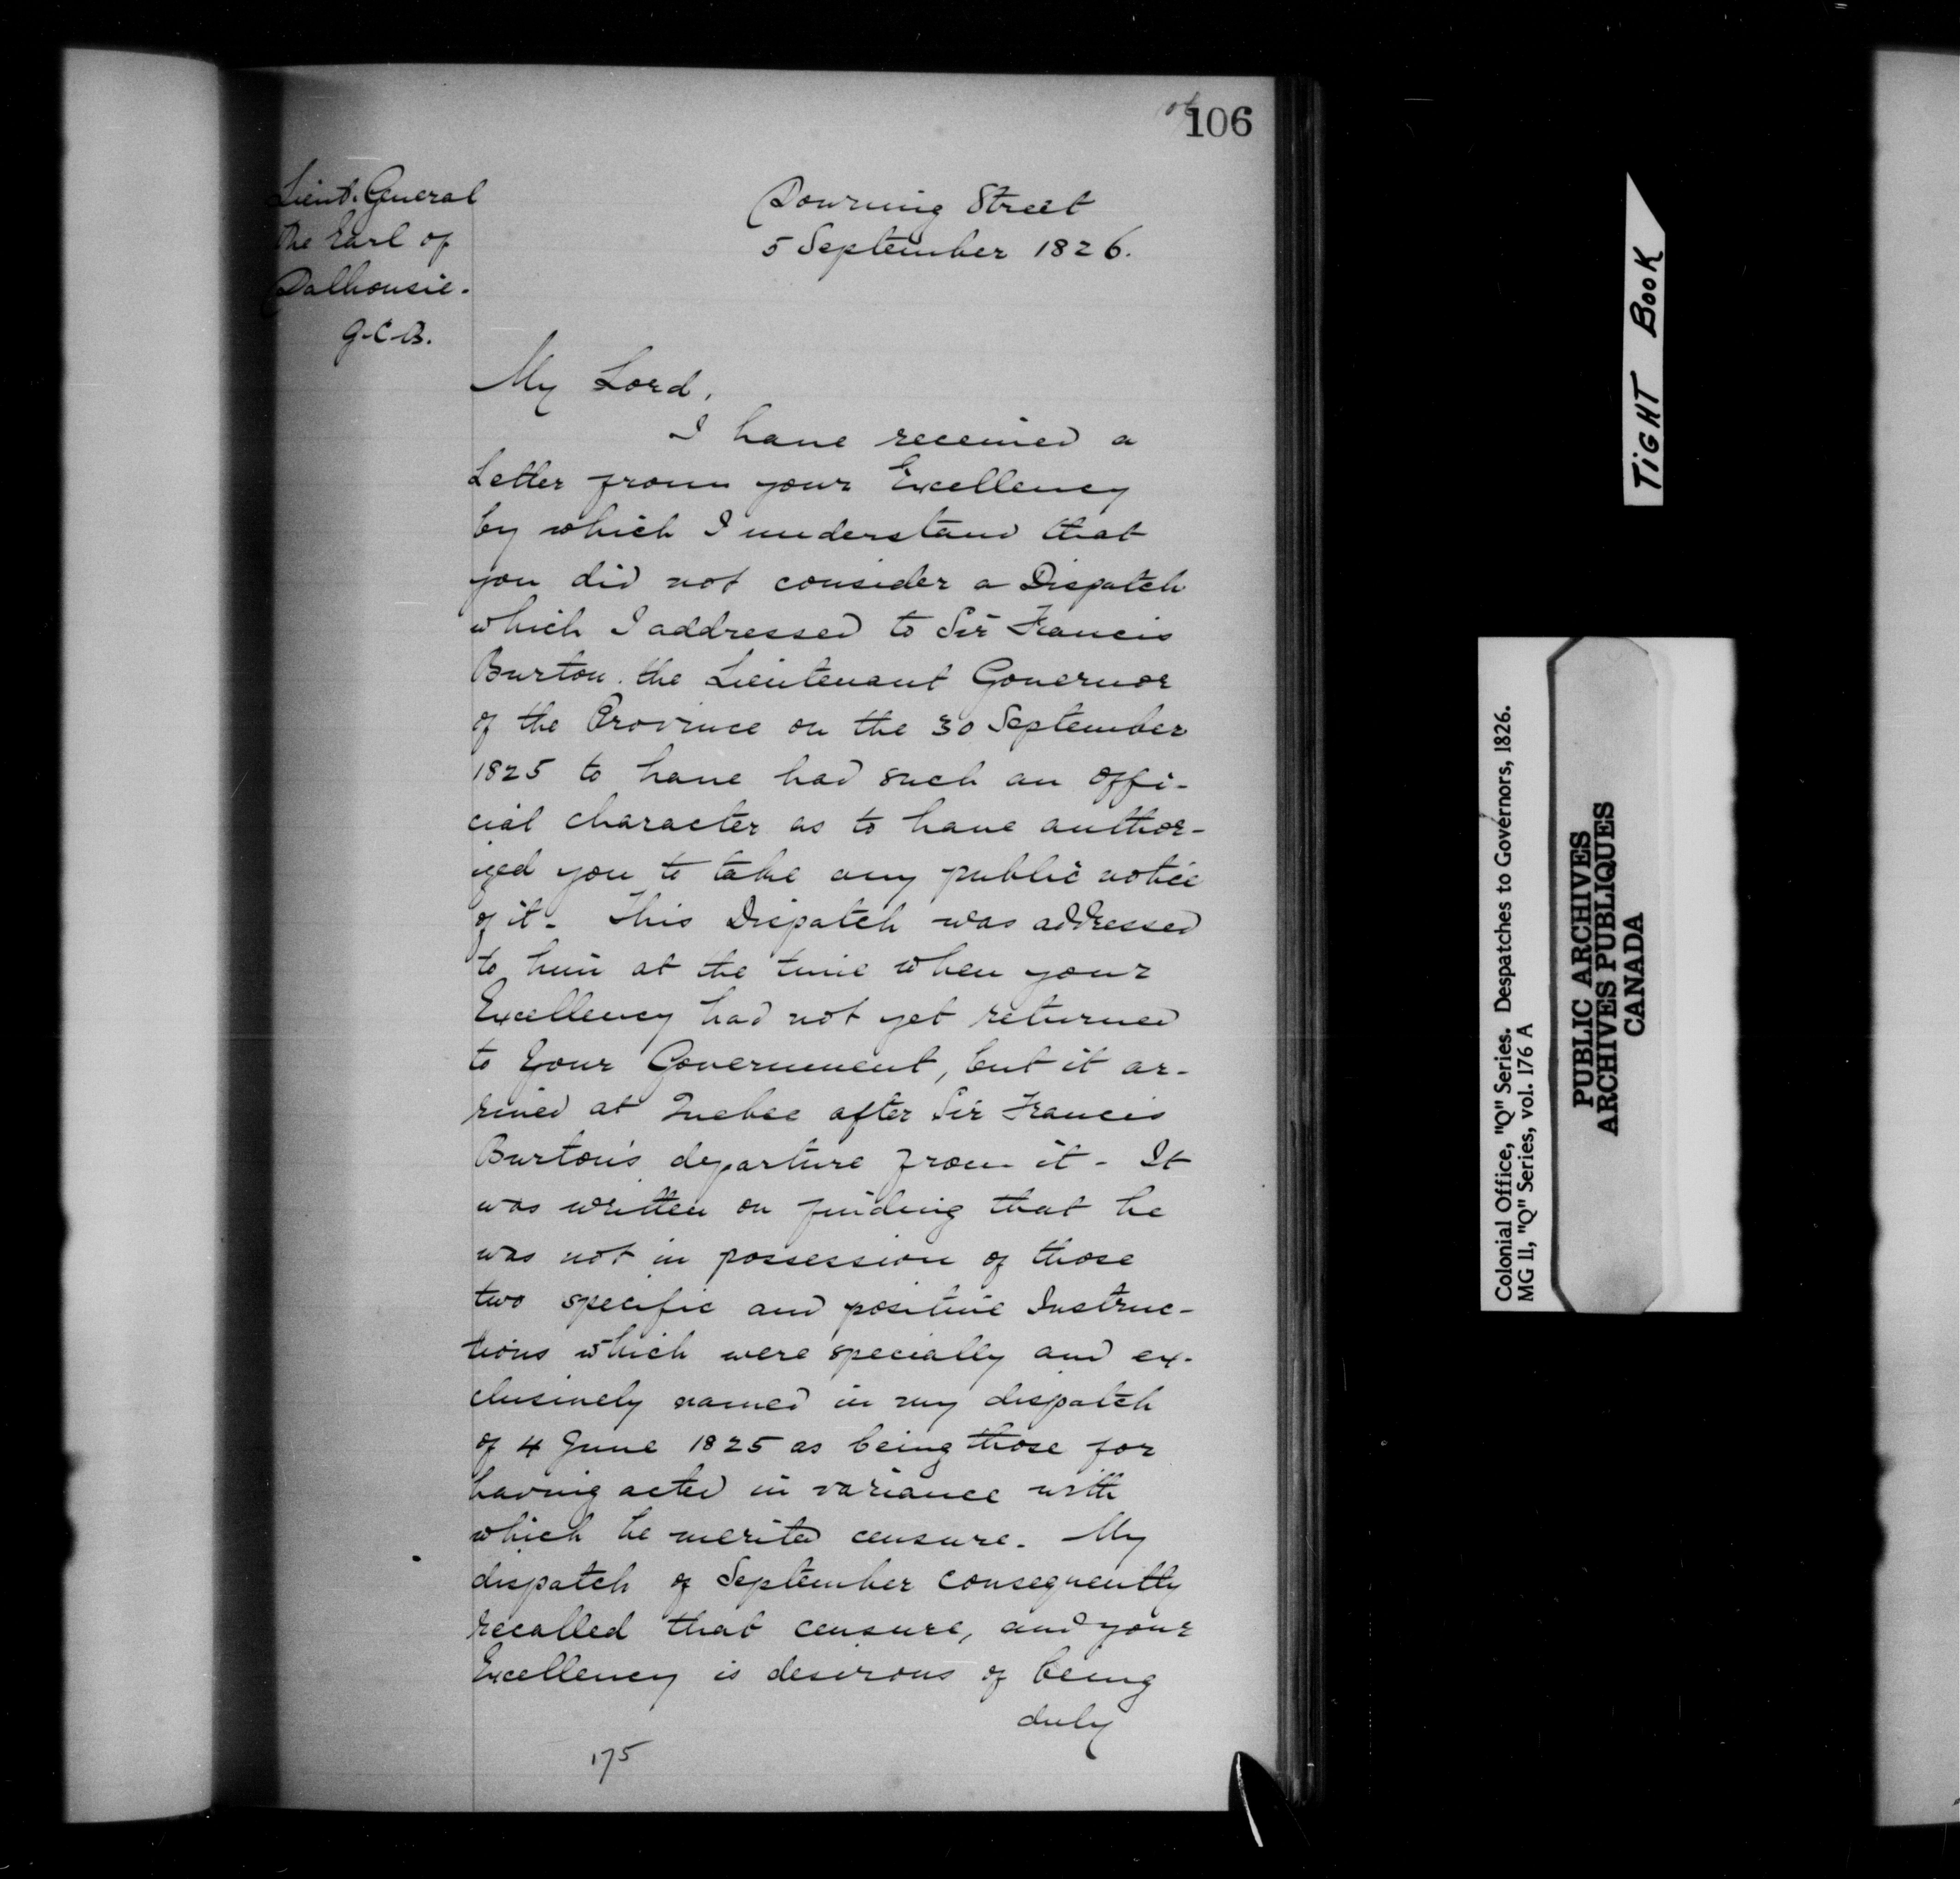 106
106
Lieut. General
The Earl of
Dalhousie.
G.C.B.
Downing Street
5 September 1826.
My Lord,
I have received a
Letter from your Excellency
by which I understand that
you did not consider a Dispatch
which I addressed to Sir Francis
Burton. the Lieutenant Governor
of the Province on the 30 September
1825 to have had such an offi-
cial character as to have author-
ized you to take any public notice
of it - This Dispatch was addressed
to him at the time when your
Excellency had not yet returned
to Your Government, but it ar-
rived at Quebec after Sir Francis
Burton's departure from it - It
was written on finding that he
was not in possession of those
two specific and positive Instruc-
tions which were specially and ex-
clusively named in my dispatch
of 4 June 1825 as being those for
having acted in variance with
which he merited censure. My
dispatch of September consequently
recalled that censure, and your
Excellency is desirous of being
duly
175
TIGHT BOOK
Colonial Office, "Q" Series. Despatches to Governors, 1826.
MG 11, "Q" Series, vol. 176 A
PUBLIC ARCHIVES
ARCHIVES PUBLIQUES
CANADA